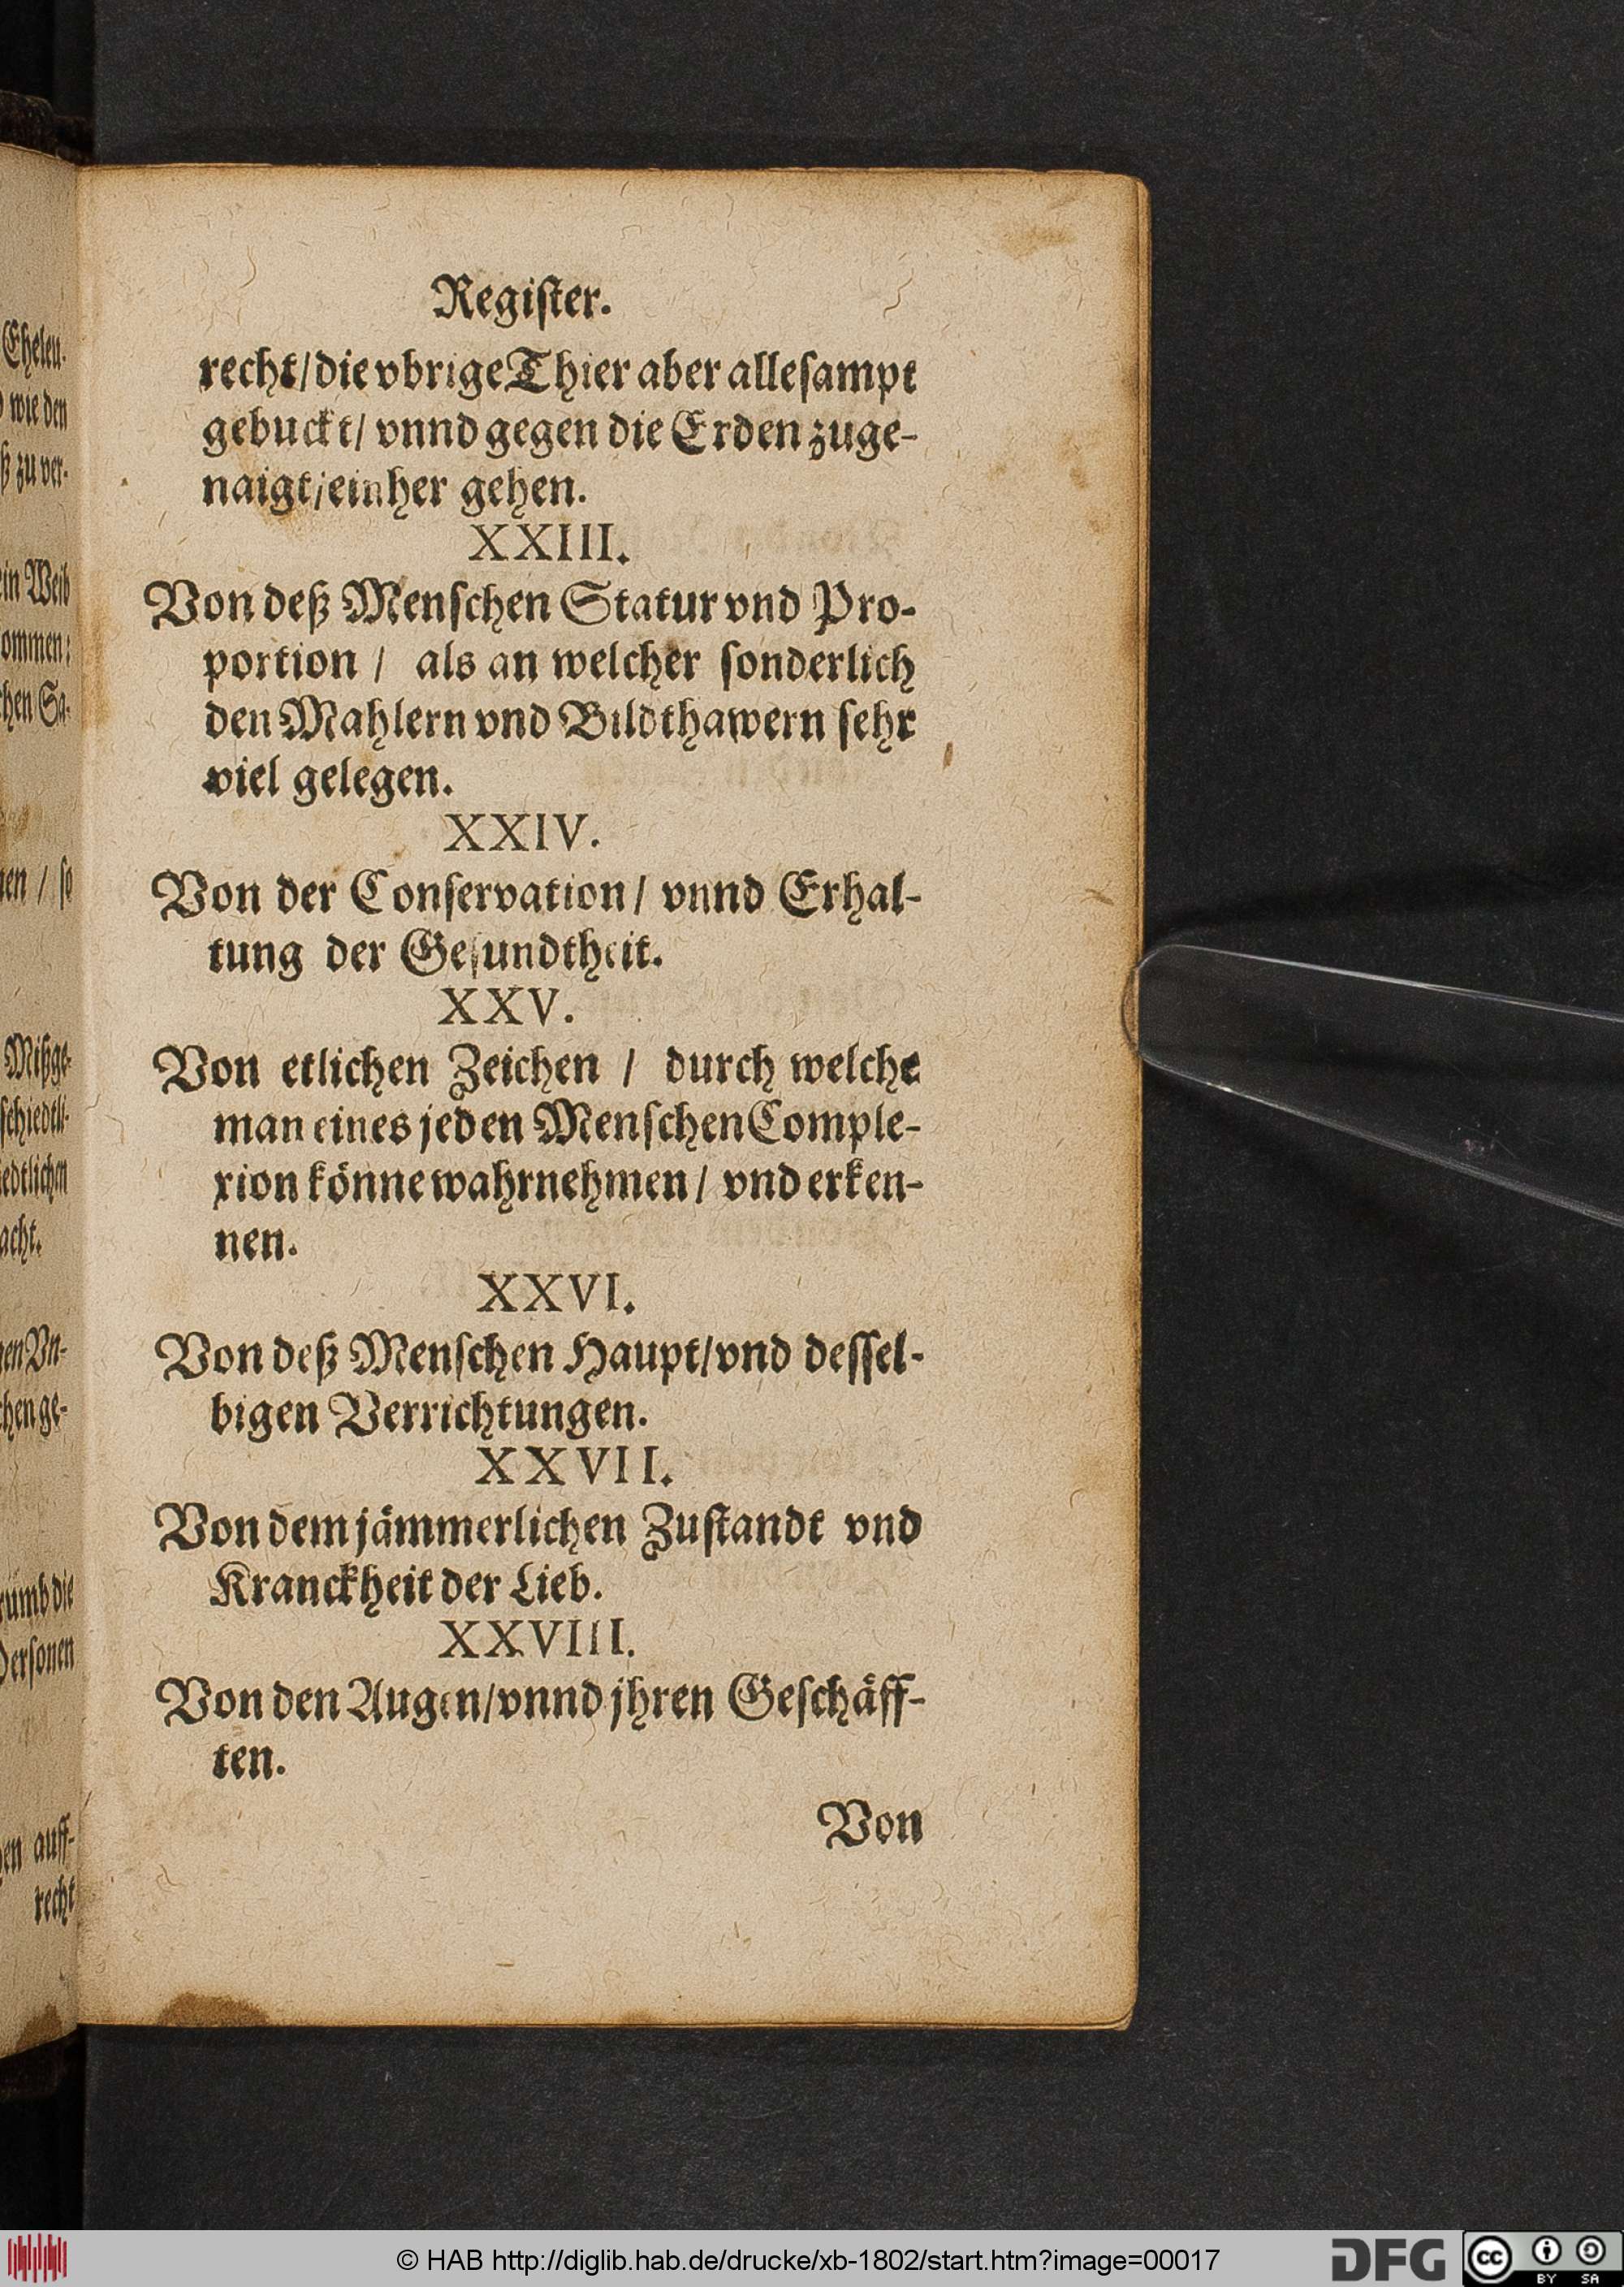 Eheleu-
wie den
ß zu ver-
ein Weib
kommen:
chen Sa-
nen / so
Mißge-
schiedtli-
iedtlichen
acht.
gen Vn-
chen ge-
rumb die
Personen
en auff-
recht
Regiſter.
recht/die vbrige Thier aber alleſampt
gebuckt/ vnnd gegen die Erden zuge-
naigt/einher gehen.
XXIII.
Von deß Menſchen Statur vnd Pro-
portion / als an welcher ſonderlich
den Mahlern vnd Bildthawern ſehr
viel gelegen.
XXIV.
Von der Conſervation / vnnd Erhal-
tung der Geſundtheit.
XXV.
Von etlichen Zeichen / durch welche
man eines jeden Menſchen Comple-
xion könne wahrnehmen / vnd erken-
nen.
XXVI.
Von deß Menſchen Haupt/vnd deſſel-
bigen Verrichtungen.
XXVII.
Von dem jämmerlichen Zuſtandt vnd
Kranckheit der Lieb.
XXVIII.
Von den Augen/vnnd jhren Geſchäff-
ten.
Von
© HAB http://diglib.hab.de/drucke/xb-1802/start.htm?image=00017
DFG
cc
BY SA